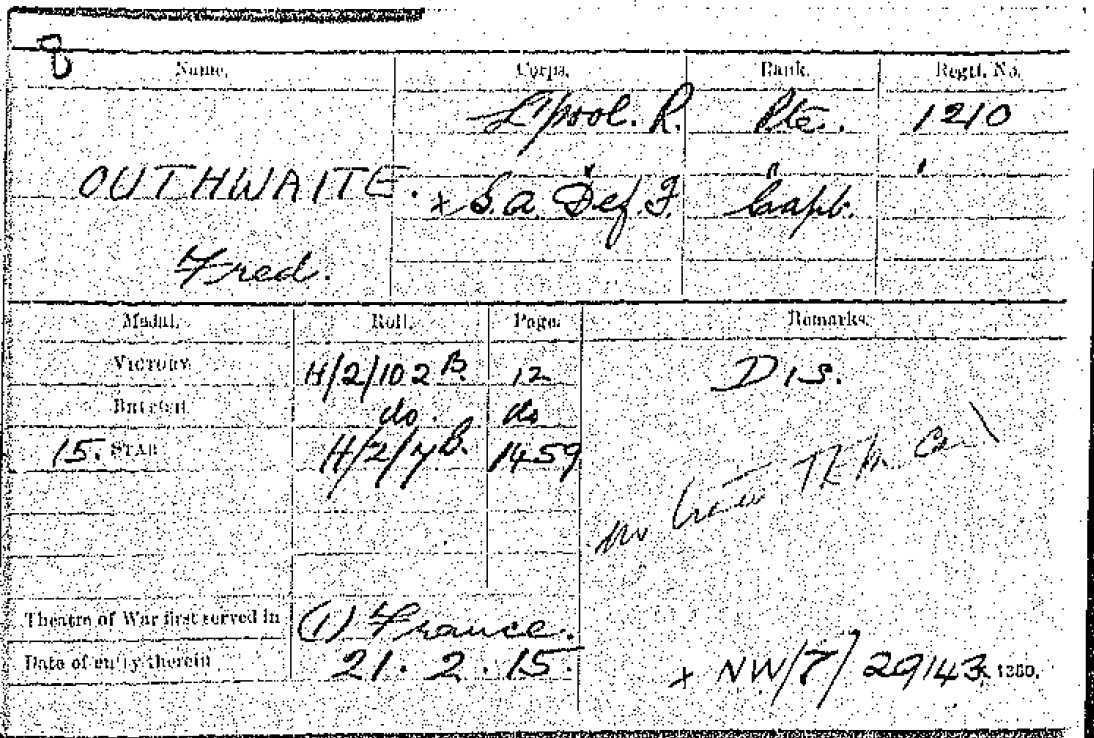 Name. Corps. Rank. Regtl. No.
L'pool. R. Pte. 1210
OUTHWAITE. x S.a. Def. F. " Capt. "
Fred.
Medal. Roll. Page. Remarks.
VICTORY H/2/102 B. 12 DIS.
BRITISH do. do
15. STAR H/2/7B. 1459
Theatre of War first served in (1) France.
Date of entry therein 21. 2. 15. x NW/7/29143. 1380.